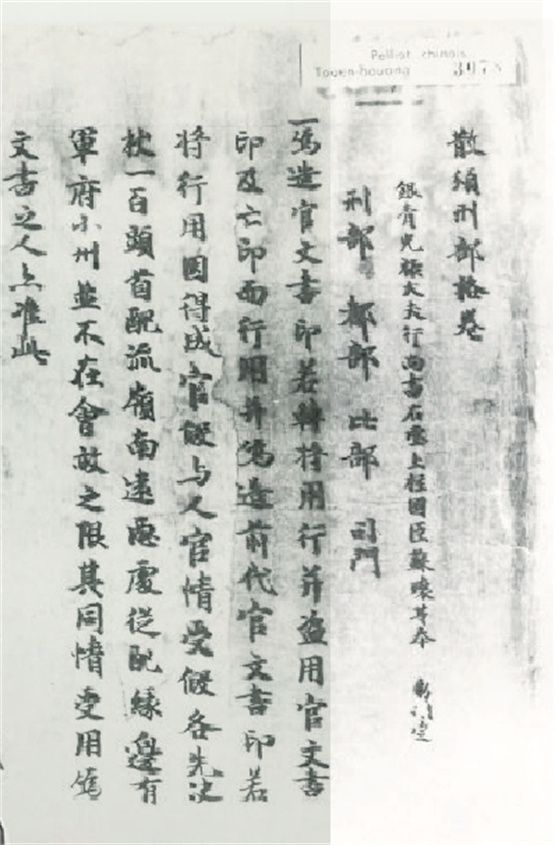 Pelliot chinois
Touen-houang 3078
散頒刑部格卷
銀青光祿大夫行尚書右丞上柱國臣蘇瓌等奉 勅刪定
刑部 都部 比部 司門
一偽造官文書印若轉將用行并盜用官文書
印及亡印而行用并偽造前代官文書印若
將行用因得成官假与人官情受假各先決
杖一百頭首配流嶺南遠惡處從配緣邊有
軍府小州並不在會赦之限其同情受用偽
文書之人亦准此